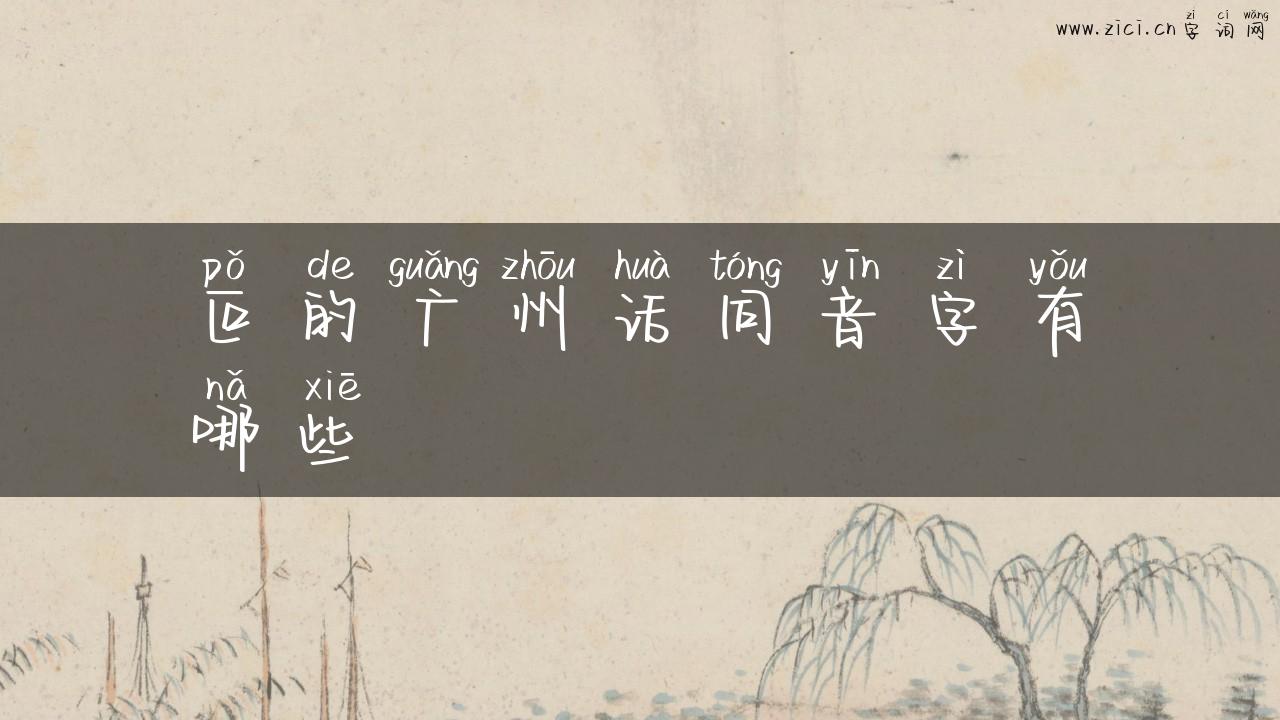 zì cí wǎng
www.zici.cn 字词网
pǒ de guǎng zhōu huà tóng yīn zì yǒu
叵的广州话同音字有
nǎ xiē
哪些